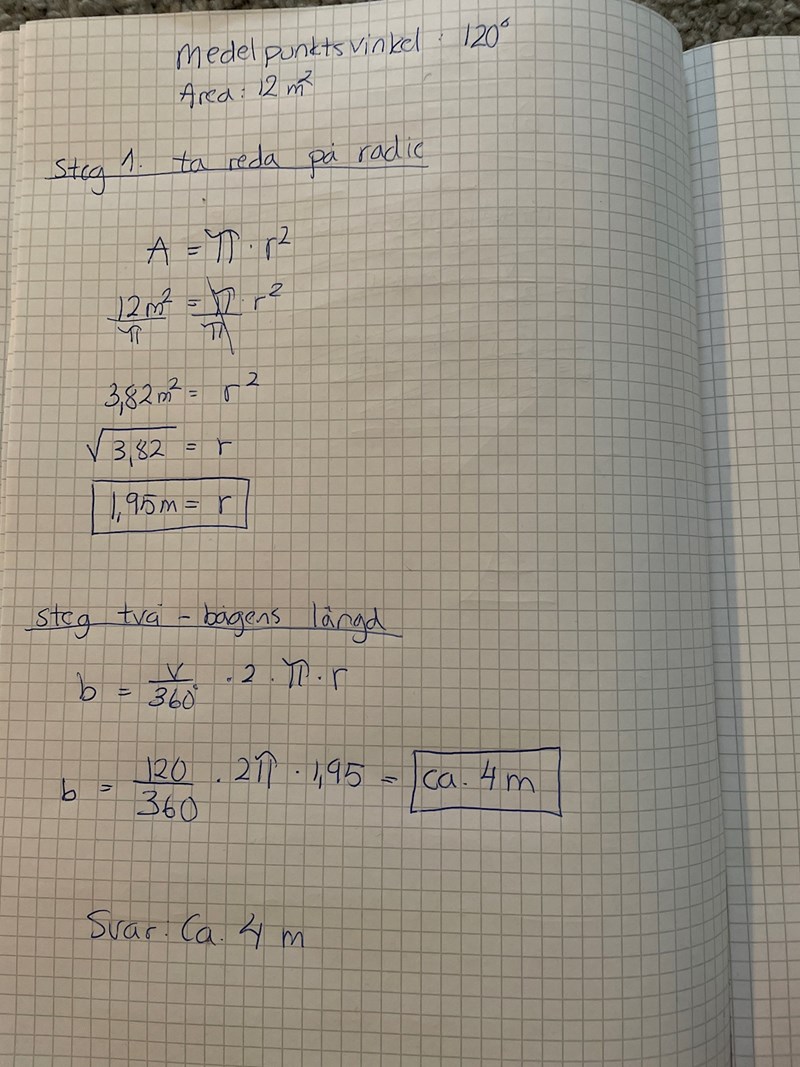 Medelpunktsvinkel: 120°
Area: 12 m²
Steg 1. ta reda på radie
A = π · r²
12m²/π = π/π · r²
3,82m² = r²
√3,82 = r
1,95m = r
Steg två - bågens längd
b = v/360° · 2 · π · r
b = 120/360 · 2π · 1,95 = ca. 4m
Svar: Ca. 4 m